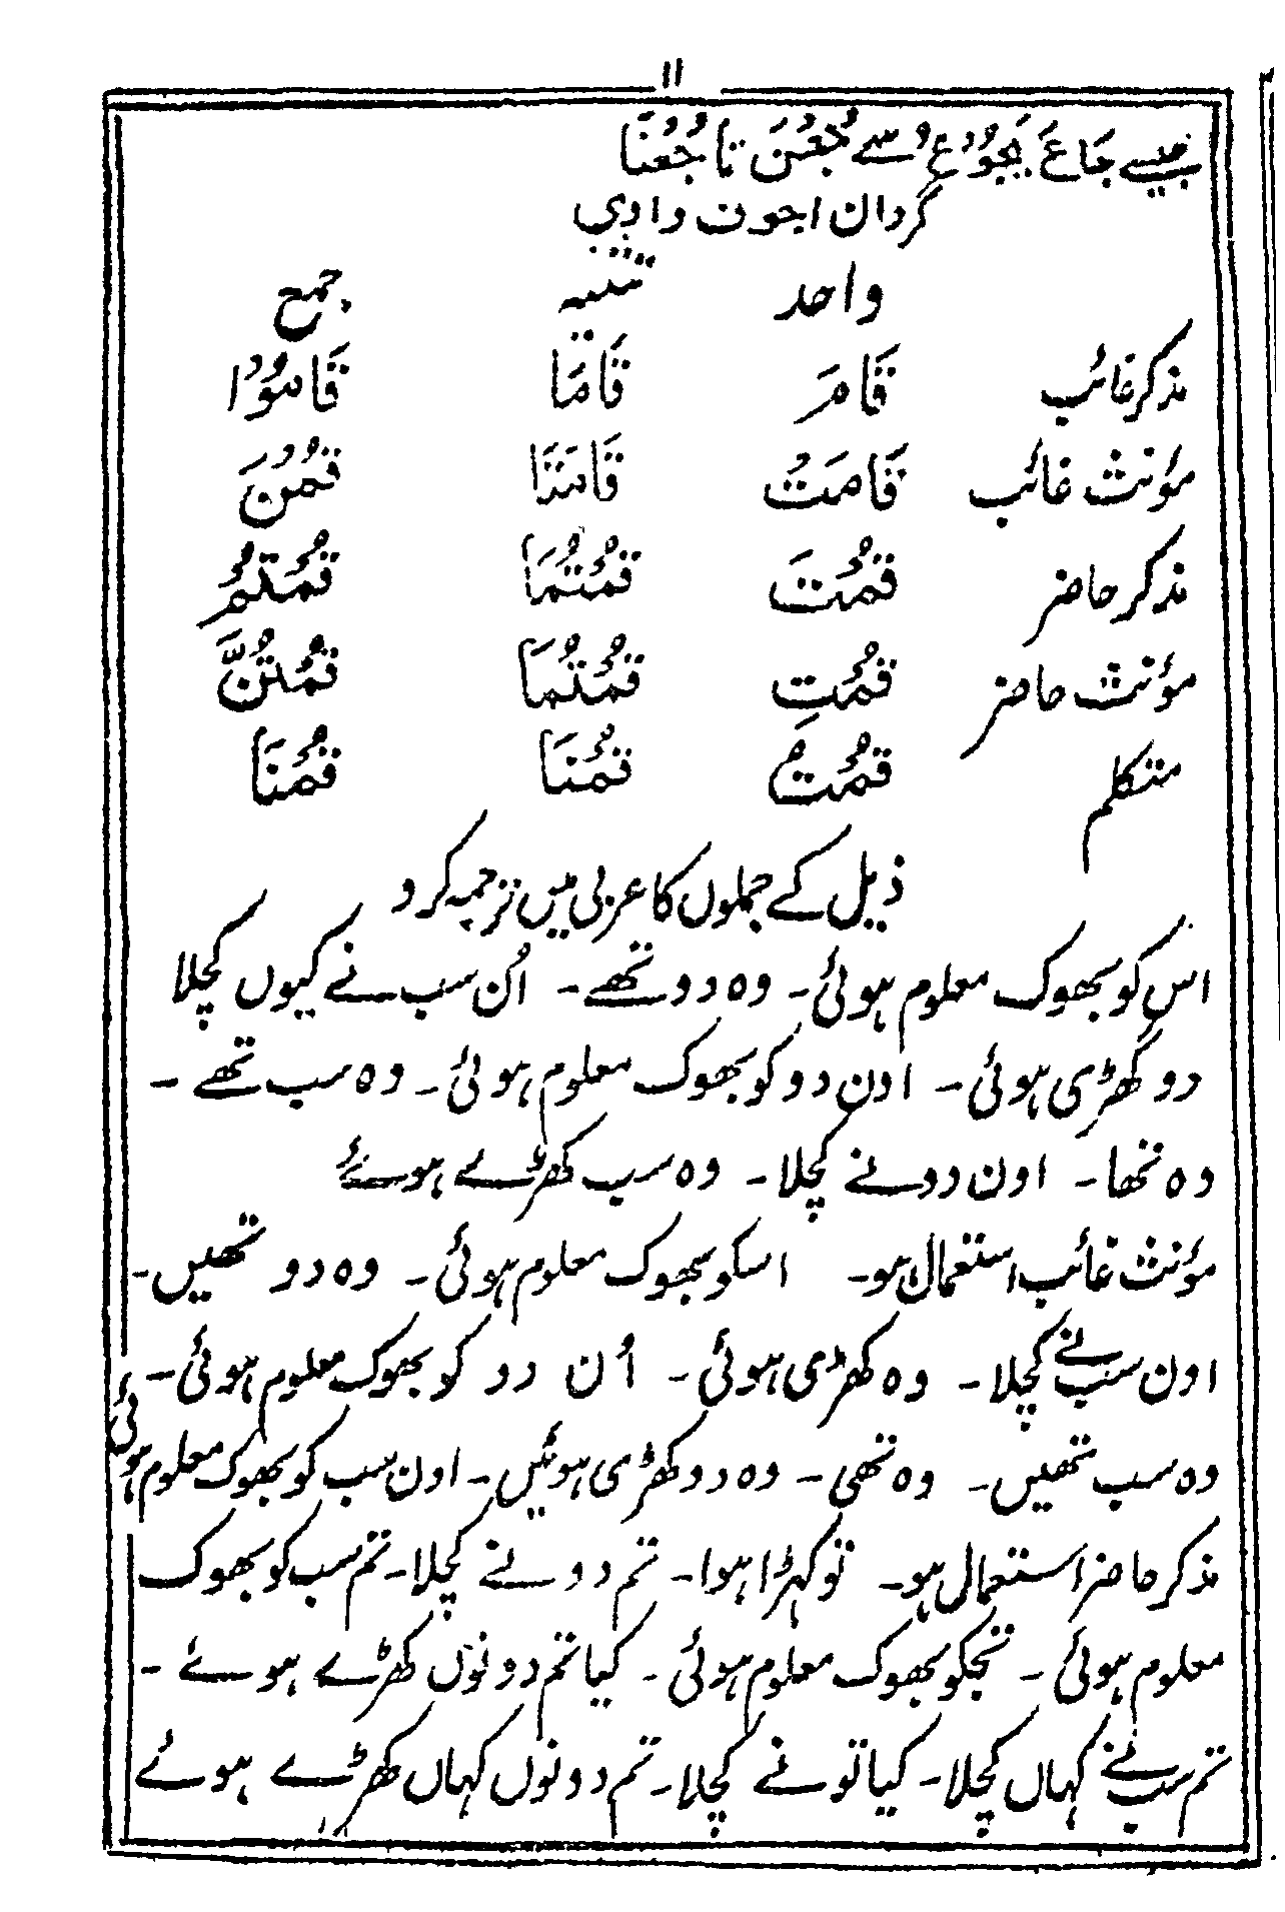 ۱۱
جیسے جَاعَ یَجُوْعُ سے جُعْنَ تا جُعْنَا
گردان اجوف وادی
واحد تثنیہ جمع
مذکر غائب قَامَ قَامَا قَامُوْا
مؤنث غائب قَامَتْ قَامَتَا قُمْنَ
مذکر حاضر قُمْتَ قُمْتُمَا قُمْتُمْ
مؤنث حاضر قُمْتِ قُمْتُمَا قُمْتُنَّ
متکلم قُمْتُ قُمْنَا قُمْنَا
ذیل کے جملوں کا عربی میں ترجمہ کرو
اس کو بھوک معلوم ہوئی۔ وہ دو تھے۔ اُن سب نے کیوں کچلا
دو کھڑی ہوئی۔ اون دو کو بھوک معلوم ہوئی۔ وہ سب تھے۔
وہ تھا۔ اون دو نے کچلا۔ وہ سب کھڑے ہوئے
مؤنث غائب استعمال ہو۔ اسکو بھوک معلوم ہوئی۔ وہ دو تھیں۔
اون سب نے کچلا۔ وہ کھڑی ہوئی۔ اُن دو کو بھوک معلوم ہوئی۔
وہ سب تھیں۔ وہ تھی۔ وہ دو کھڑی ہوئیں۔ اون سب کو بھوک معلوم ہوئی
مذکر حاضر استعمال ہو۔ تو کہڑا ہوا۔ تم دو نے کچلا۔ تم سب کو بھوک
معلوم ہوئی۔ تجکو بھوک معلوم ہوئی۔ کیا تم دونوں کھڑے ہوئے۔
تم سب نے کہاں کچلا۔ کیا تو نے کچلا۔ تم دونوں کہاں کھڑے ہوئے